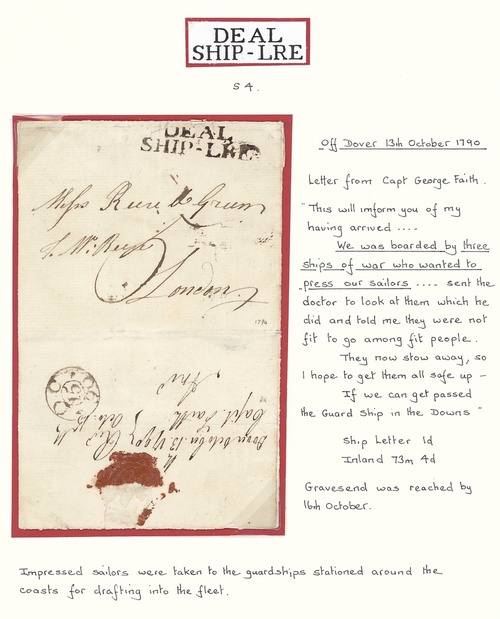 DEAL
SHIP-LRE
S 4.
DEAL
SHIP-LRE
London
1790
Off Dover 13th October 1790
Letter from Capt George Faith.
"This will imform you of my
having arrived ....
We was boarded by three
ships of war who wanted to
press our sailors .... sent the
doctor to look at them which he
did and told me they were not
fit to go among fit people.
They now stow away, so
I hope to get them all safe up –
If we can get passed
the Guard Ship in the Downs "
Ship Letter 1d
Inland 73m 4d
Gravesend was reached by
16th October.
Impressed sailors were taken to the guardships stationed around the
coasts for drafting into the fleet.